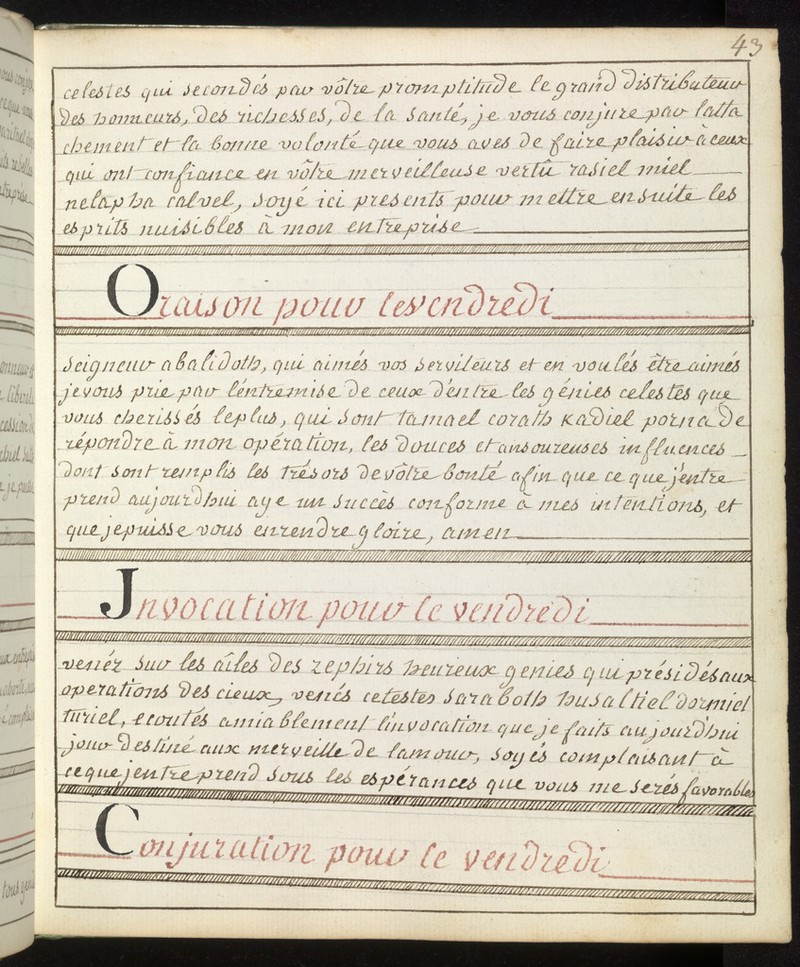 43
celestes qui secondés par vôtre promptitude le grand distributeur
des honneurs, des richesses, de la santé, je vous conjure par latta
chement et la bonne volonté que vous aves de faire plaisir à ceux
qui ont confiance en vôtre merveilleuse vertû rasiel miel
nelapha calvel, soyé ici presents pour mettre ensuite les
esprits nuisibles à mon entreprise
Oraison pour levendredi
Seigneur abalidoth, qui aimés vos serviteurs et en voulés être aimés
je vous prie par léntremise de ceux d'éntre les génies celestes que
vous cherissés leplus, qui sont tamael corath kadiel porna de
répondre à mon opération, les douces et amsoureuses influences
dont sont remplis les trésors de vôtre bonté afin que ce que j'entre
prend aujourdhui aye un succès conforme à mes intentions, et
que je puisse vous enrendre gloire, amen
Jnvocation pour le vendredi
venéz sur les aîles des zephirs heureux genies qui présidés aux
operations des cieux, venés celestes saraboth husaltiel dormiel
turiel, ecoutés amiablement línvocation que je faits aujourdhui
jour destiné aux merveille de lamour, soyés complaisant à
ceque jentreprend sous les espérances que vous me serés favorables
Conjuration pour le vendredi